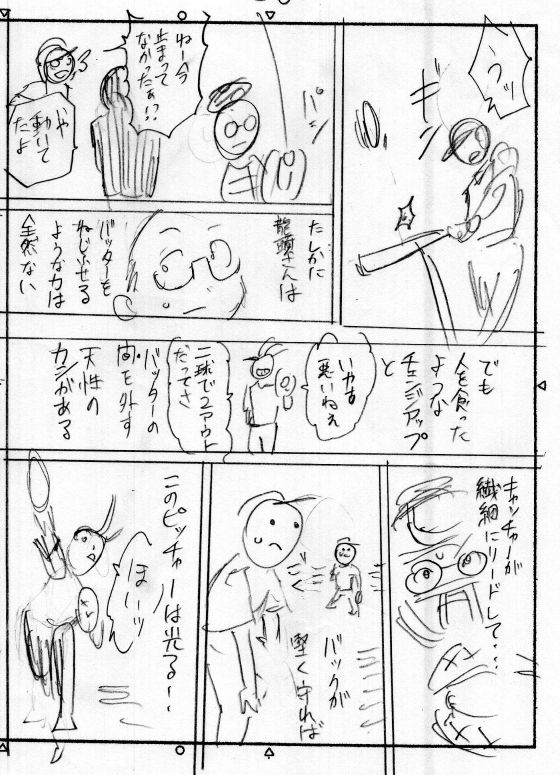 うッ
ギン
パシ
ねー今
止まって
なかったぁ?
や
動いて
たよ
たしかに
龍頭さんは
バッターを
ねじふせる
ような力は
全然ない
でも
人を食った
ような
チェンジアップ
と
いやす
悪いねぇ
二球で2アウト
だってさ
バッターの
を外す
天性の
カンがある
キャッチャーが
繊細にリードして・・・
バックが
堅く守れば
このピッチャーは光る・・
ほーいッ